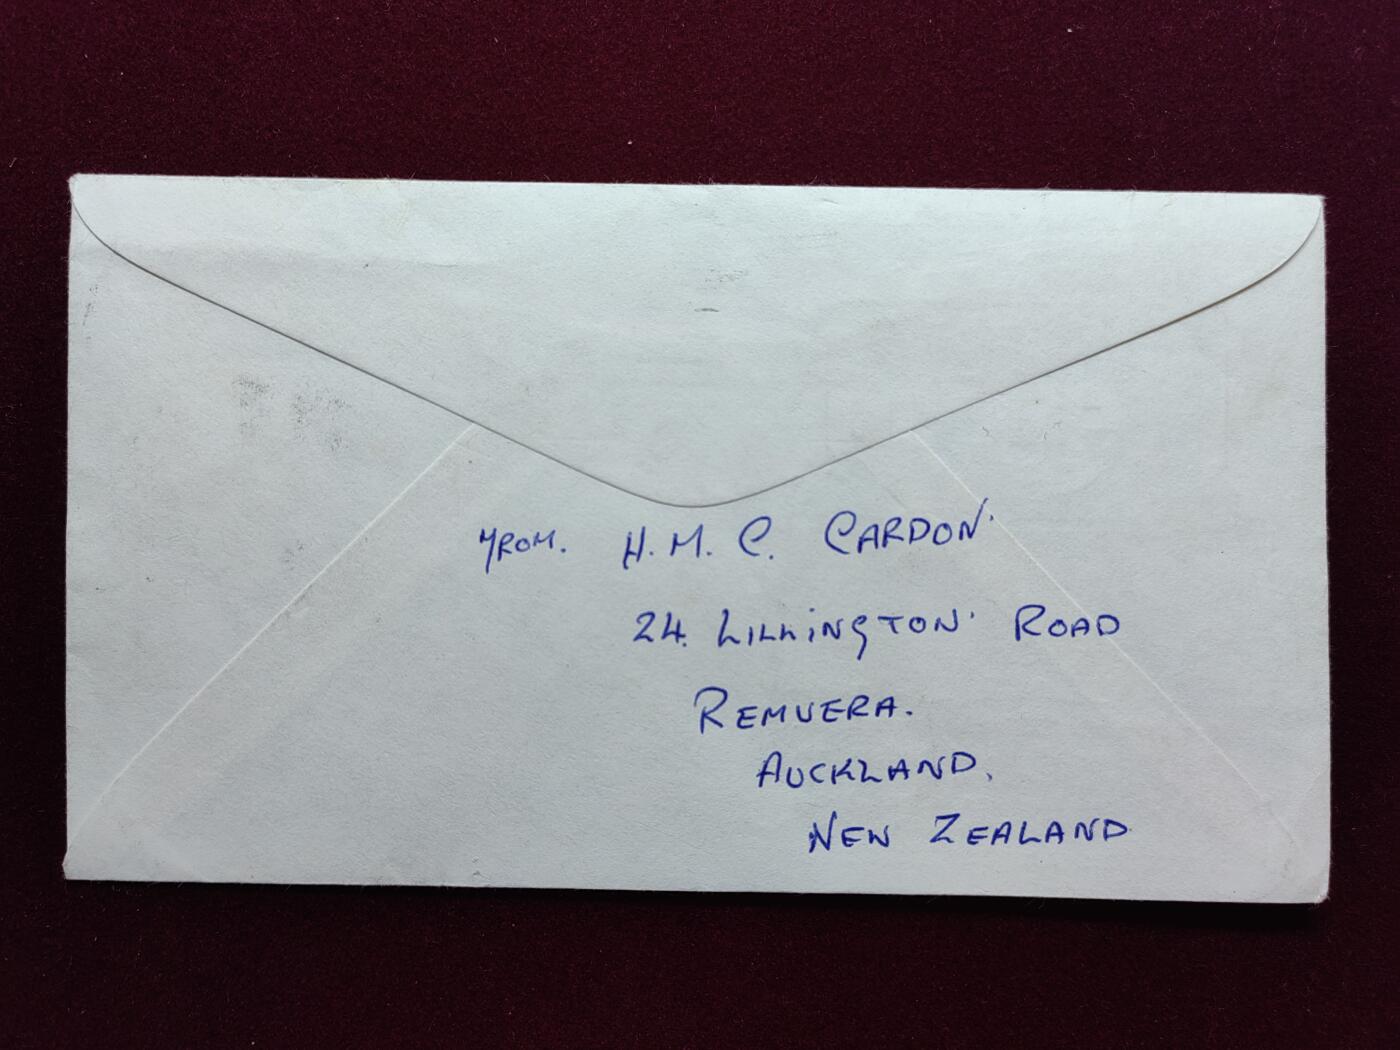 FROM. H. M. C. CARDON
24. LILLINGTON ROAD
REMUERA.
AUCKLAND.
NEW ZEALAND